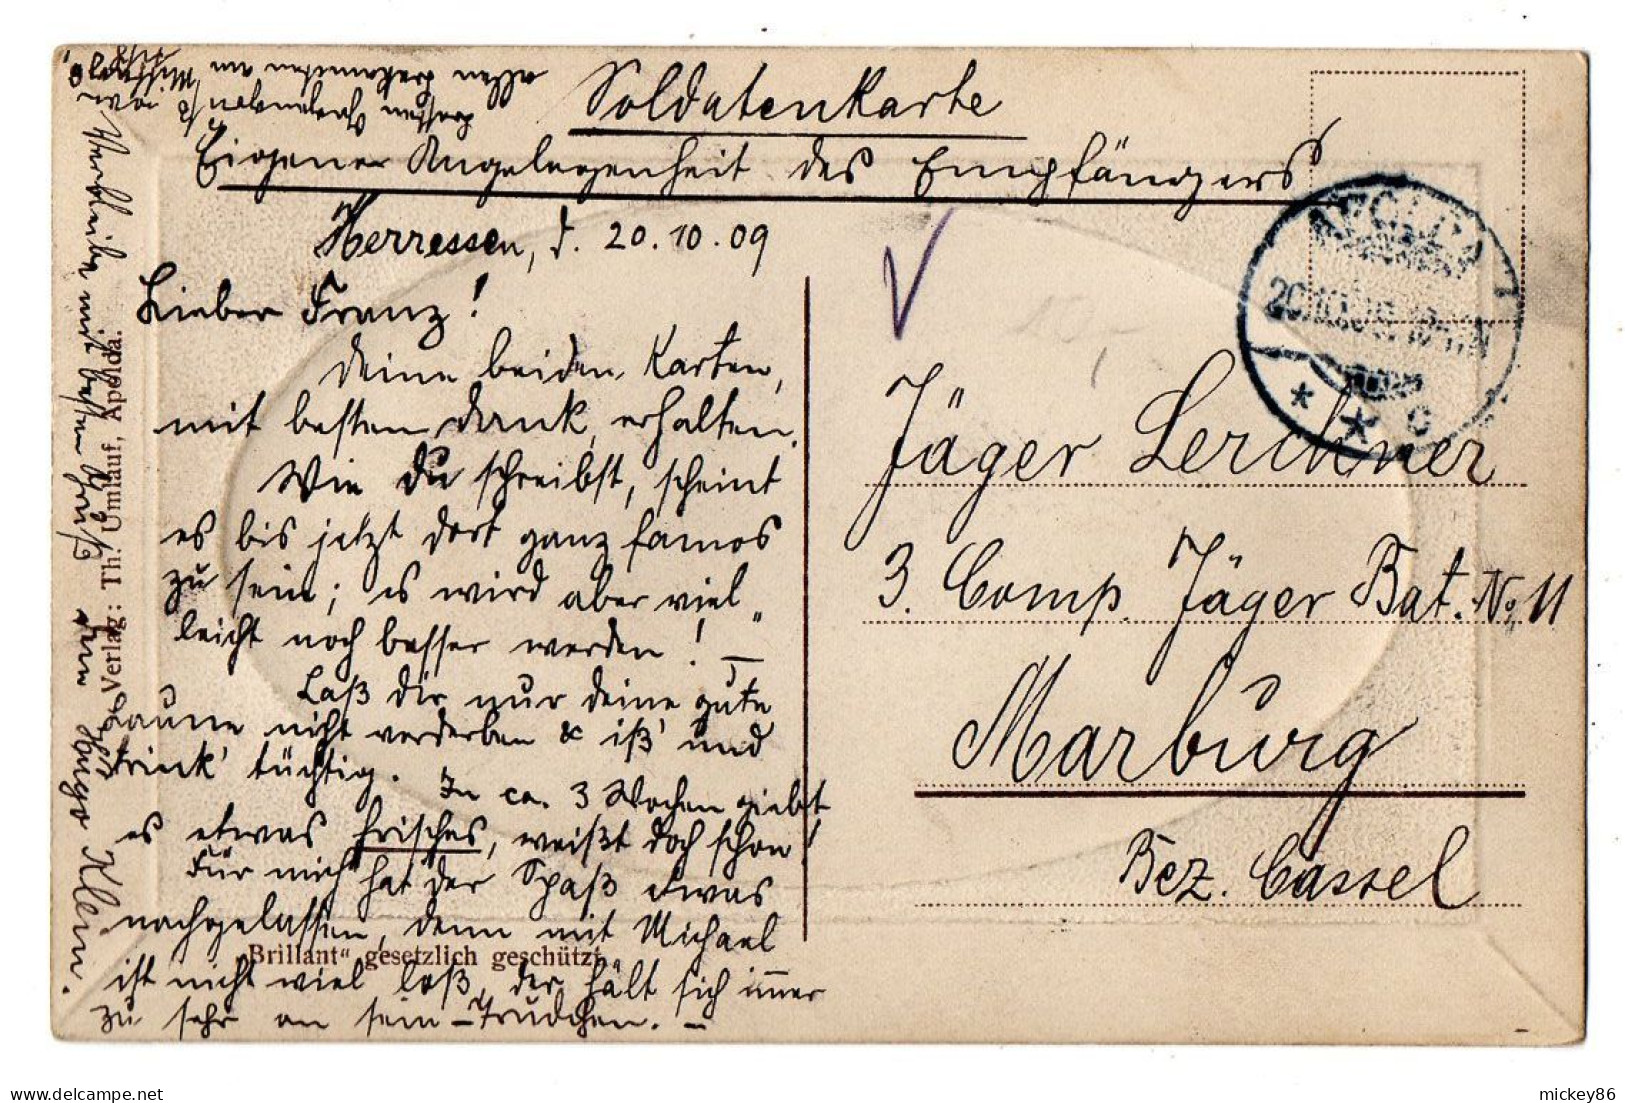 Soldatenkarte
Eigener Angelegenheit des Empfängers
Herressen, d. 20.10.09
Lieber Franz!
Deine beiden Karten,
mit besten Dank, erhalten.
Wie Du schreibst, scheint
es bis jetzt dort ganz famos
zu sein; es wird aber viel„
leicht noch besser werden! —
Laß dir nur deine gute
Laune nicht verderben & iß' und
trink' tüchtig. In ca. 3 Wochen giebt
es etwas frisches, weißt doch schon!
Für mich hat der Spaß etwas
nachgelassen, denn mit Michael
ist nicht viel loß, der hält sich immer
zu sehr an sein Trudchen. —
Verbleibe mit besten Gruß dein
Hugo Klein.
allen Bekannten am
besten
Jäger Lerchner
3. Comp. Jäger Bat. No 11
Marburg
Bez. Cassel
APOLDA
20.10.09
* * c
Verlag: Th. Umlauf, Apolda.
„Brillant“ gesetzlich geschützt.
mickey86